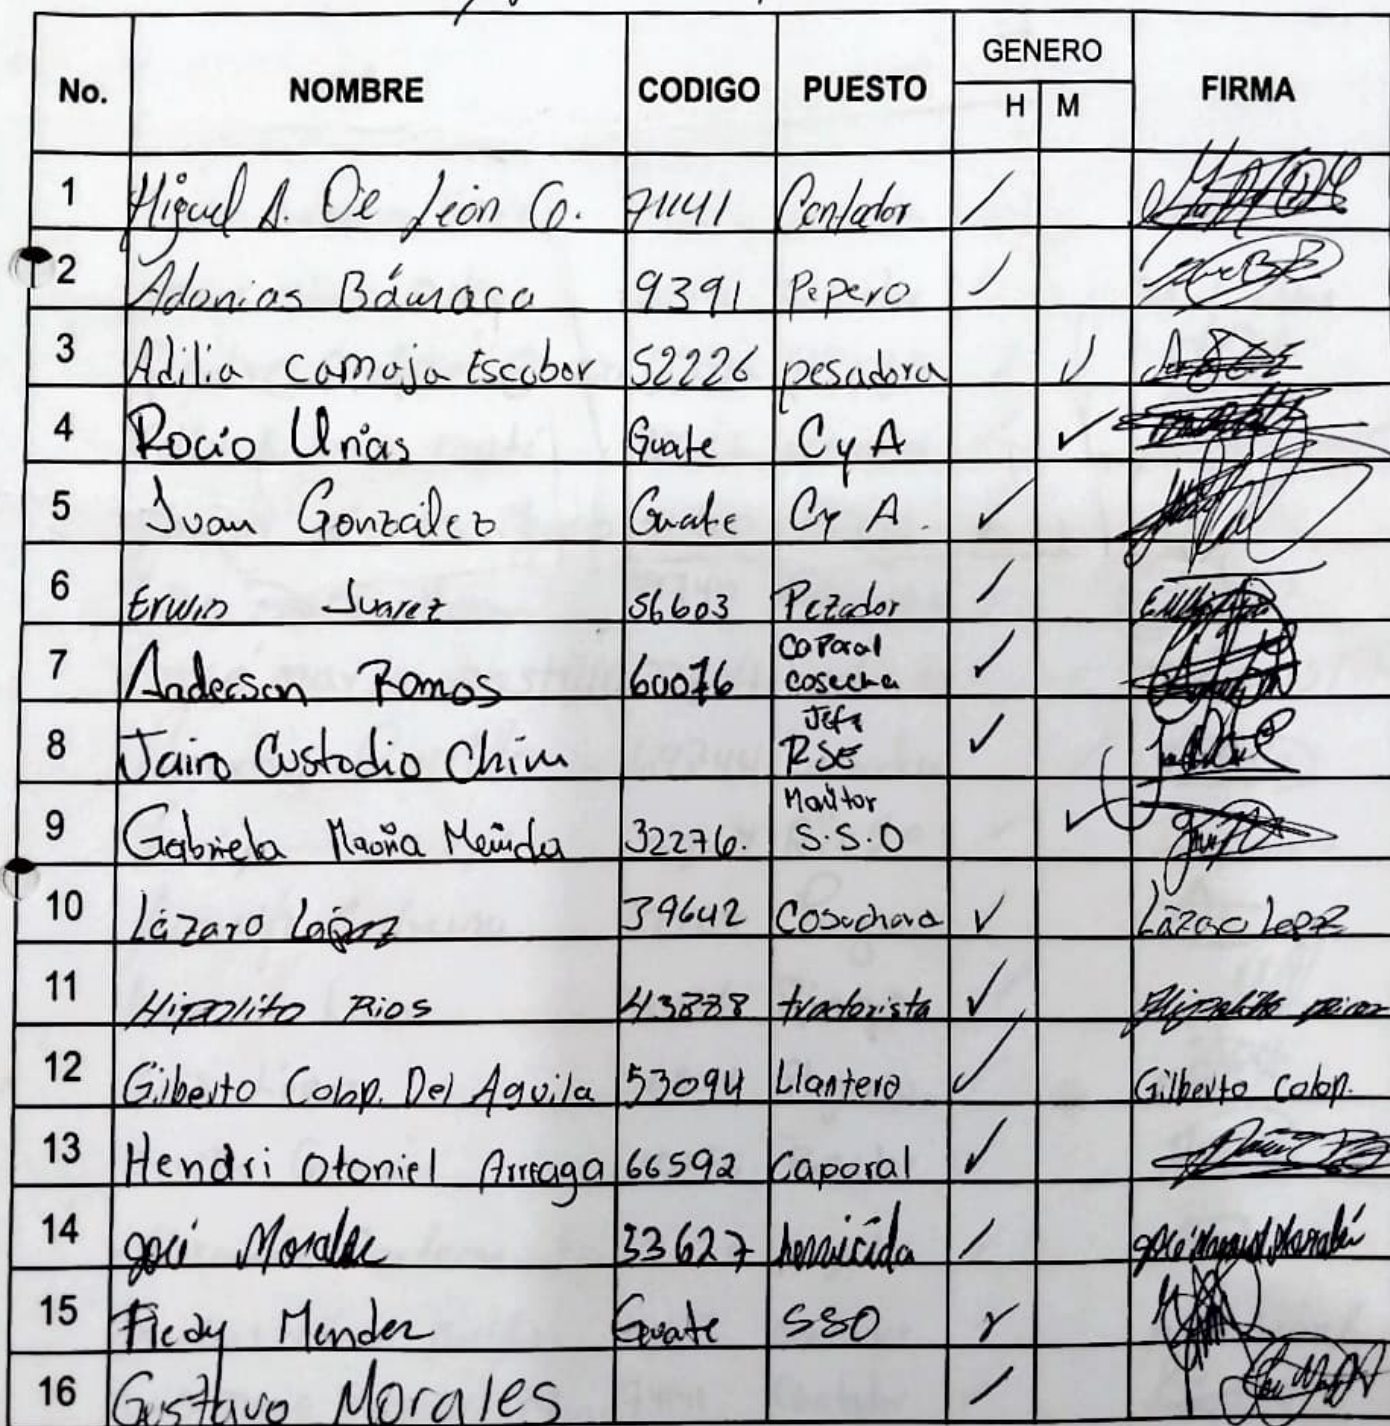 No. NOMBRE CODIGO PUESTO GENERO H M FIRMA
1 Miguel A. De León Co. 71141 Contador /
2 Adonias Bámaca 9391 Pepero /
3 Adilia camaja Escobar 52226 pesadora ✓
4 Rocio Urias Guate C y A ✓
5 Juan González Guate C y A. ✓
6 Erwin Juarez 56603 Pezador /
7 Anderson Ramos 60076 caporal cosecha ✓
8 Jairo Custodio Chim Jefe RSE ✓
9 Gabriela María 32276. Monitor S.S.O ✓
10 Lázaro López 39642 ✓ Lázaro Lopz
11 Hipolito Rios 43888 tractorista ✓ Hipolito
12 Gilberto Colop. Del Aguila 53094 Llantero ✓ Gilberto Colop.
13 Hendri Otoniel Arreaga 66592 Caporal ✓
14 José Morales 33627 /
15 Fredy Mendez Guate SSO ✓
16 Gustavo Morales /